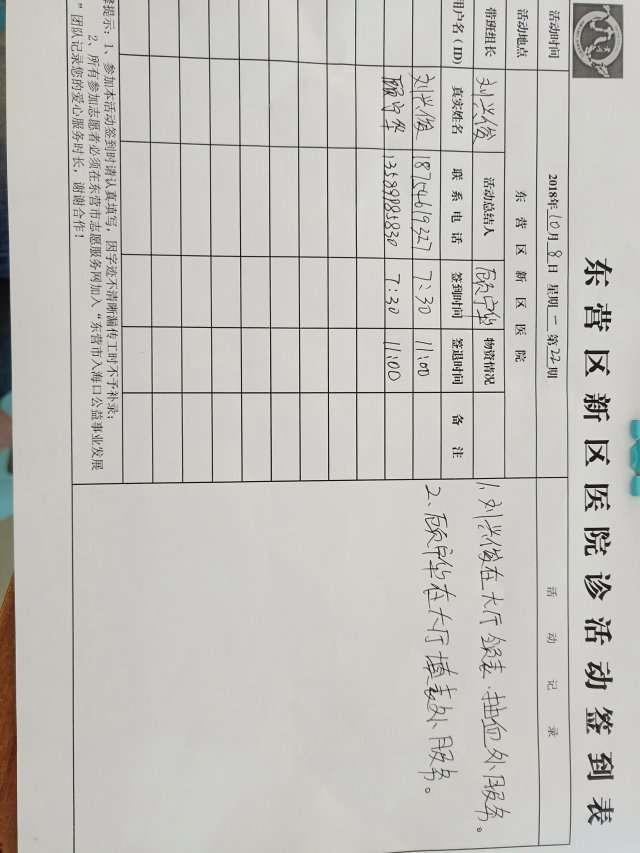 东营区新区医院诊活动签到表
活动时间 2018年10月8日 星期一 第22期 活动记录
活动地点 东营区新区医院
带班组长 刘兴俊 活动总结人 顾守华 物资情况
用户名(ID) 真实姓名 联系电话 签到时间 签退时间 备注
刘兴俊 18754619327 7:30 11:00
顾守华 13589985830 7:30 11:00
1、刘兴俊在大厅领表、抽血处服务。
2、顾守华在大厅填表处服务。
提示：1、参加本活动签到时请认真填写，因字迹不清晰漏传工时不予补录；
2、所有参加志愿者必须在东营市志愿服务网加入“东营市入海口公益事业发展
”团队记录您的爱心服务时长，谢谢合作！